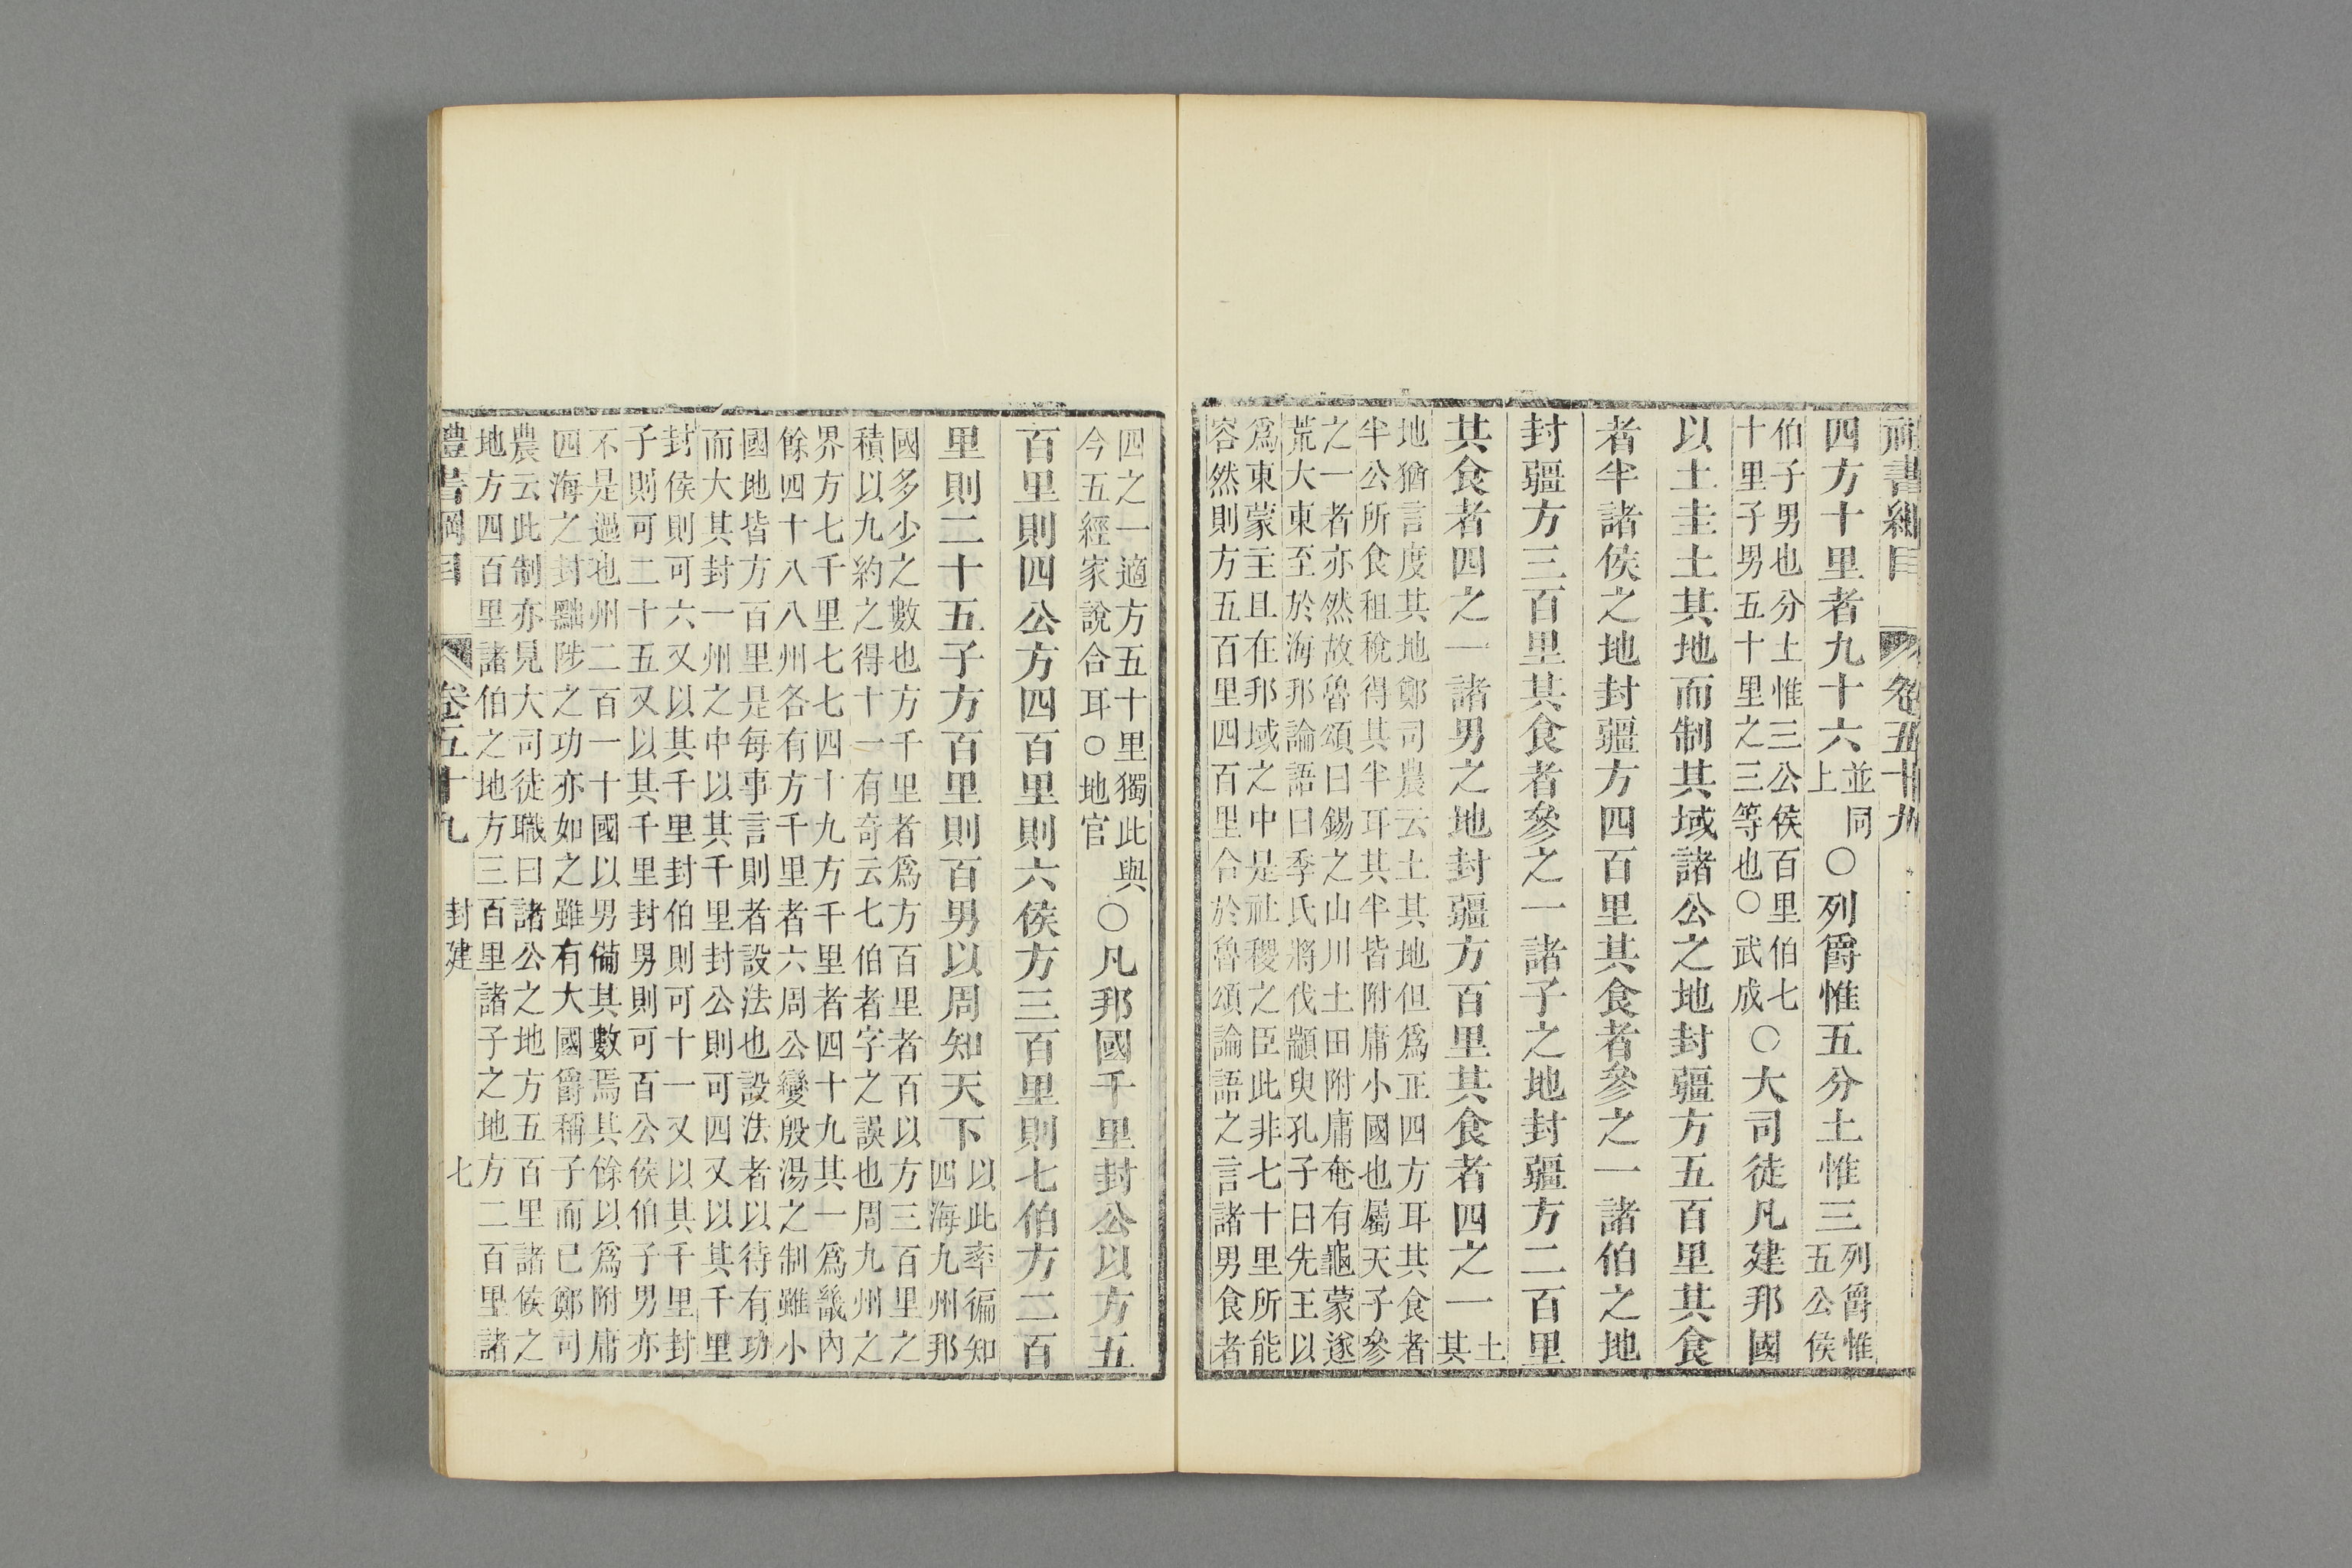 禮書綱目 卷五十九
四方十里者九十六並同上○列爵惟五分土惟三列爵惟五公侯
伯子男也分土惟三公侯百里伯七十里子男五十里之三等也○武成○大司徒凡建邦國
以土圭土其地而制其域諸公之地封疆方五百里其食
者半諸侯之地封疆方四百里其食者參之一諸伯之地
封疆方三百里其食者參之一諸子之地封疆方二百里
其食者四之一諸男之地封疆方百里其食者四之一土其
地猶言度其地鄭司農云土其地但爲正四方耳其食者
半公所食租稅得其半耳其半皆附庸小國也屬天子參
之一者亦然故魯頌曰錫之山川土田附庸奄有龜蒙遂
荒大東至於海邦論語曰季氏將伐顓臾孔子曰先王以
爲東蒙主且在邦域之中是社稷之臣此非七十里所能
容然則方五百里四百里合於魯頌論語之言諸男食者
四之一適方五十里獨此與今五經家說合耳○地官○凡邦國千里封公以方五
百里則四公方四百里則六侯方三百里則七伯方二百
里則二十五子方百里則百男以周知天下以此率徧知四海九州邦
國多少之數也方千里者爲方百里者百以方三百里之
積以九約之得十一有奇云七伯者字之誤也周九州之
界方七千里七七四十九方千里者四十九其一爲畿內
餘四十八八州各有方千里者六周公變殷湯之制雖小
國地皆方百里是每事言則者設法也設法者以待有功
而大其封一州之中以其千里封公則可四又以其千里
封侯則可六又以其千里封伯則可十一又以其千里封
子則可二十五又以其千里封男則可百公侯伯子男亦
不是過也州二百一十國以男備其數焉其餘以爲附庸
四海之封黜陟之功亦如之雖有大國爵稱子而已鄭司
農云此制亦見大司徒職曰諸公之地方五百里諸侯之
地方四百里諸伯之地方三百里諸子之地方二百里諸
禮書綱目 卷五十九 封建 七